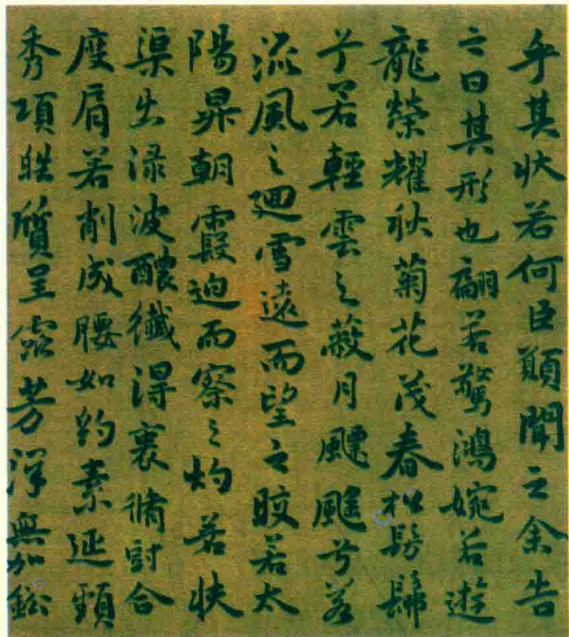 乎其状若何臣願聞之余告
之曰其形也翩若驚鴻婉若遊
龍榮耀秋菊花茂春松髣髴
兮若輕雲之蔽月飄颻兮若
流風之廻雪遠而望之皎若太
陽昇朝霞迫而察之灼若夫
渠出渌波醲纖得衷脩短合
度肩若削成腰如約素延頸
秀項皓質呈露芳澤無加鉛